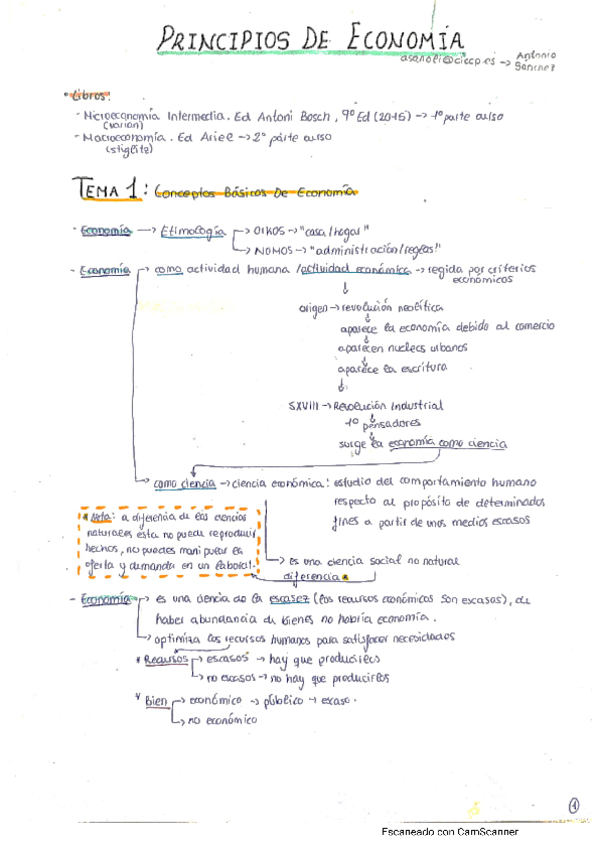 PRINCIPIOS DE ECONOMÍA
asanoli@ciccp.es → Antonio Sánchez
• Libros:
- Microeconomía Intermedia. Ed Antoni Bosch, 9º Ed (2015) → 1º parte curso
(Varian)
- Macroeconomía. Ed Ariel → 2º parte curso
(Stiglitz)
TEMA 1: Conceptos Básicos De Economía
- Economía → Etimología → OIKOS → "casa/hogar"
→ NOMOS → "administración/reglas"
- Economía → como actividad humana /actividad económica → regida por criterios
económicos
origen → revolución neolítica
aparece la economía debido al comercio
aparecen nucleos urbanos
aparece la escritura
SXVIII → Revolución Industrial
1º pensadores
surge la economía como ciencia
→ como ciencia → ciencia económica: estudio del comportamiento humano
respecto al propósito de determinados
fines a partir de unos medios escasos
* Nota: a diferencia de las ciencias
naturales esta no puede reproducir
hechos, no puedes manipular la
oferta y demanda en un laborat.
→ es una ciencia social no natural
diferencia *
- Economía → es una ciencia de la escasez (los recursos económicos son escasos), de
haber abundancia de bienes no habría economía.
→ optimiza los recursos humanos para satisfacer necesidades
* Recursos → escasos → hay que producirlos
→ no escasos → no hay que producirlos
* Bien → económico → público → escaso.
→ no económico
1
Escaneado con CamScanner